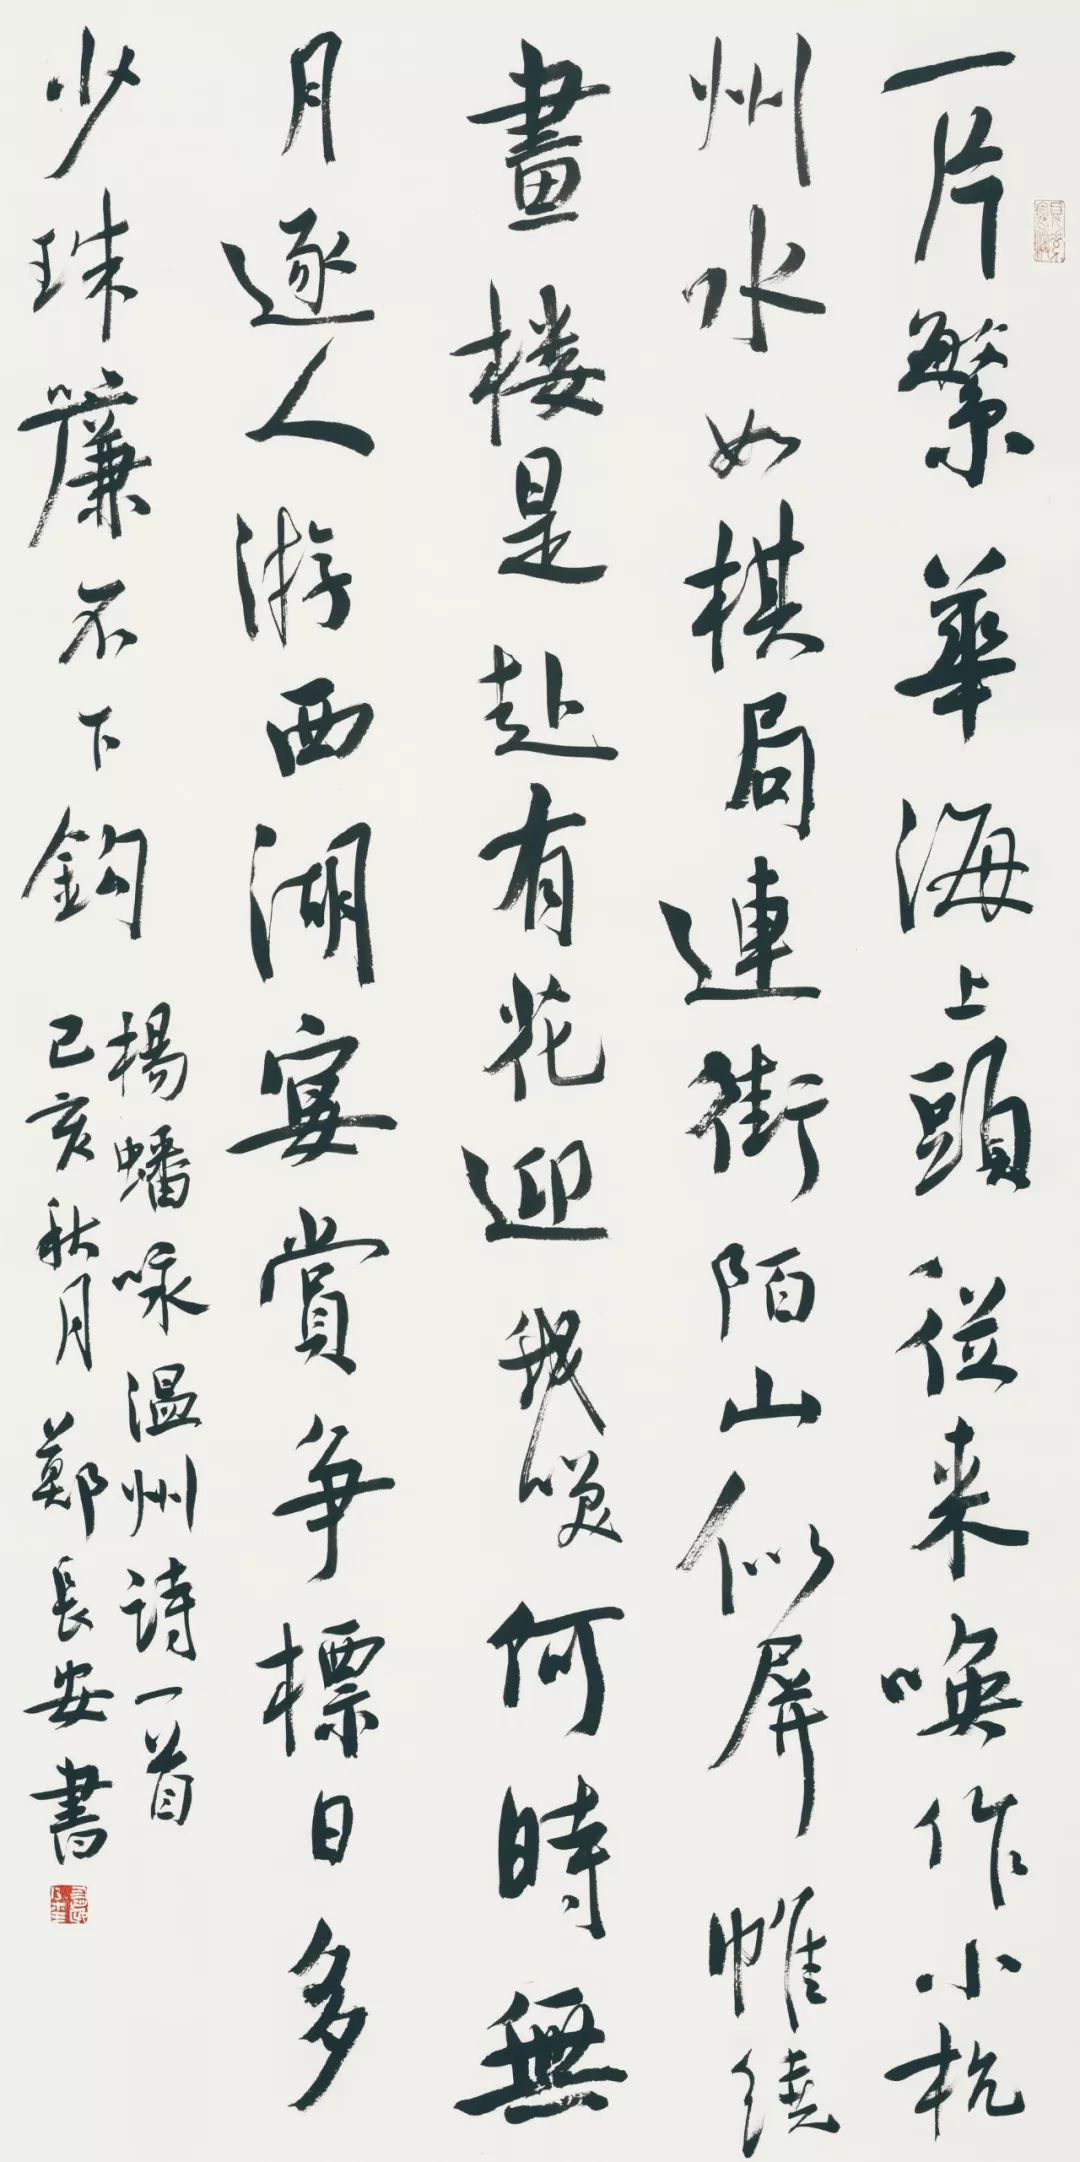 一片繁華海上頭從来唤作小杭
州水如棋局連街陌山似屏帷繞
畫楼是處有花迎我笑何時無
月逐人游西湖宴賞争標日多
少珠簾不下鈎
楊蟠咏温州詩一首
己亥秋月鄭長安書